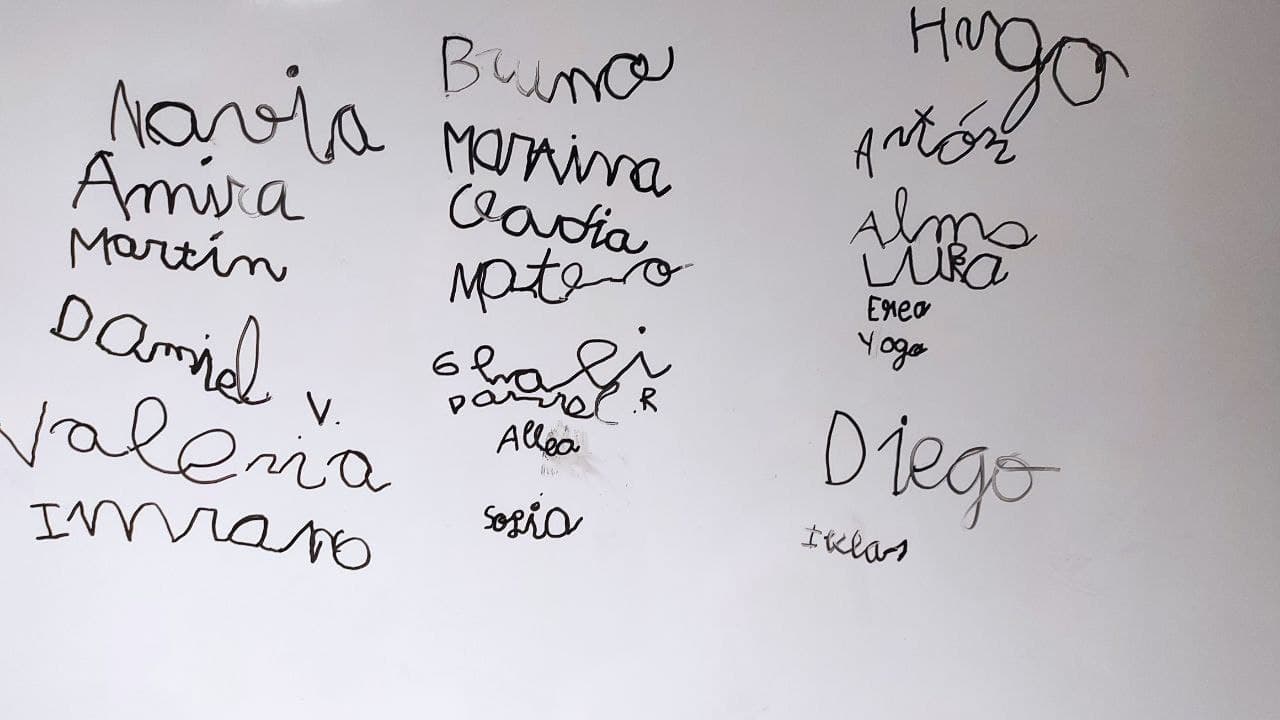 Navia
Amira
Martín
Daniel V.
Valeria
Imrano
Bruno
Martina
Claudia
Mateo
Ghali
Daniel.R
Allea
Sofia
Hugo
Antón
Alma
Erea
Yago
Diego
Iklas